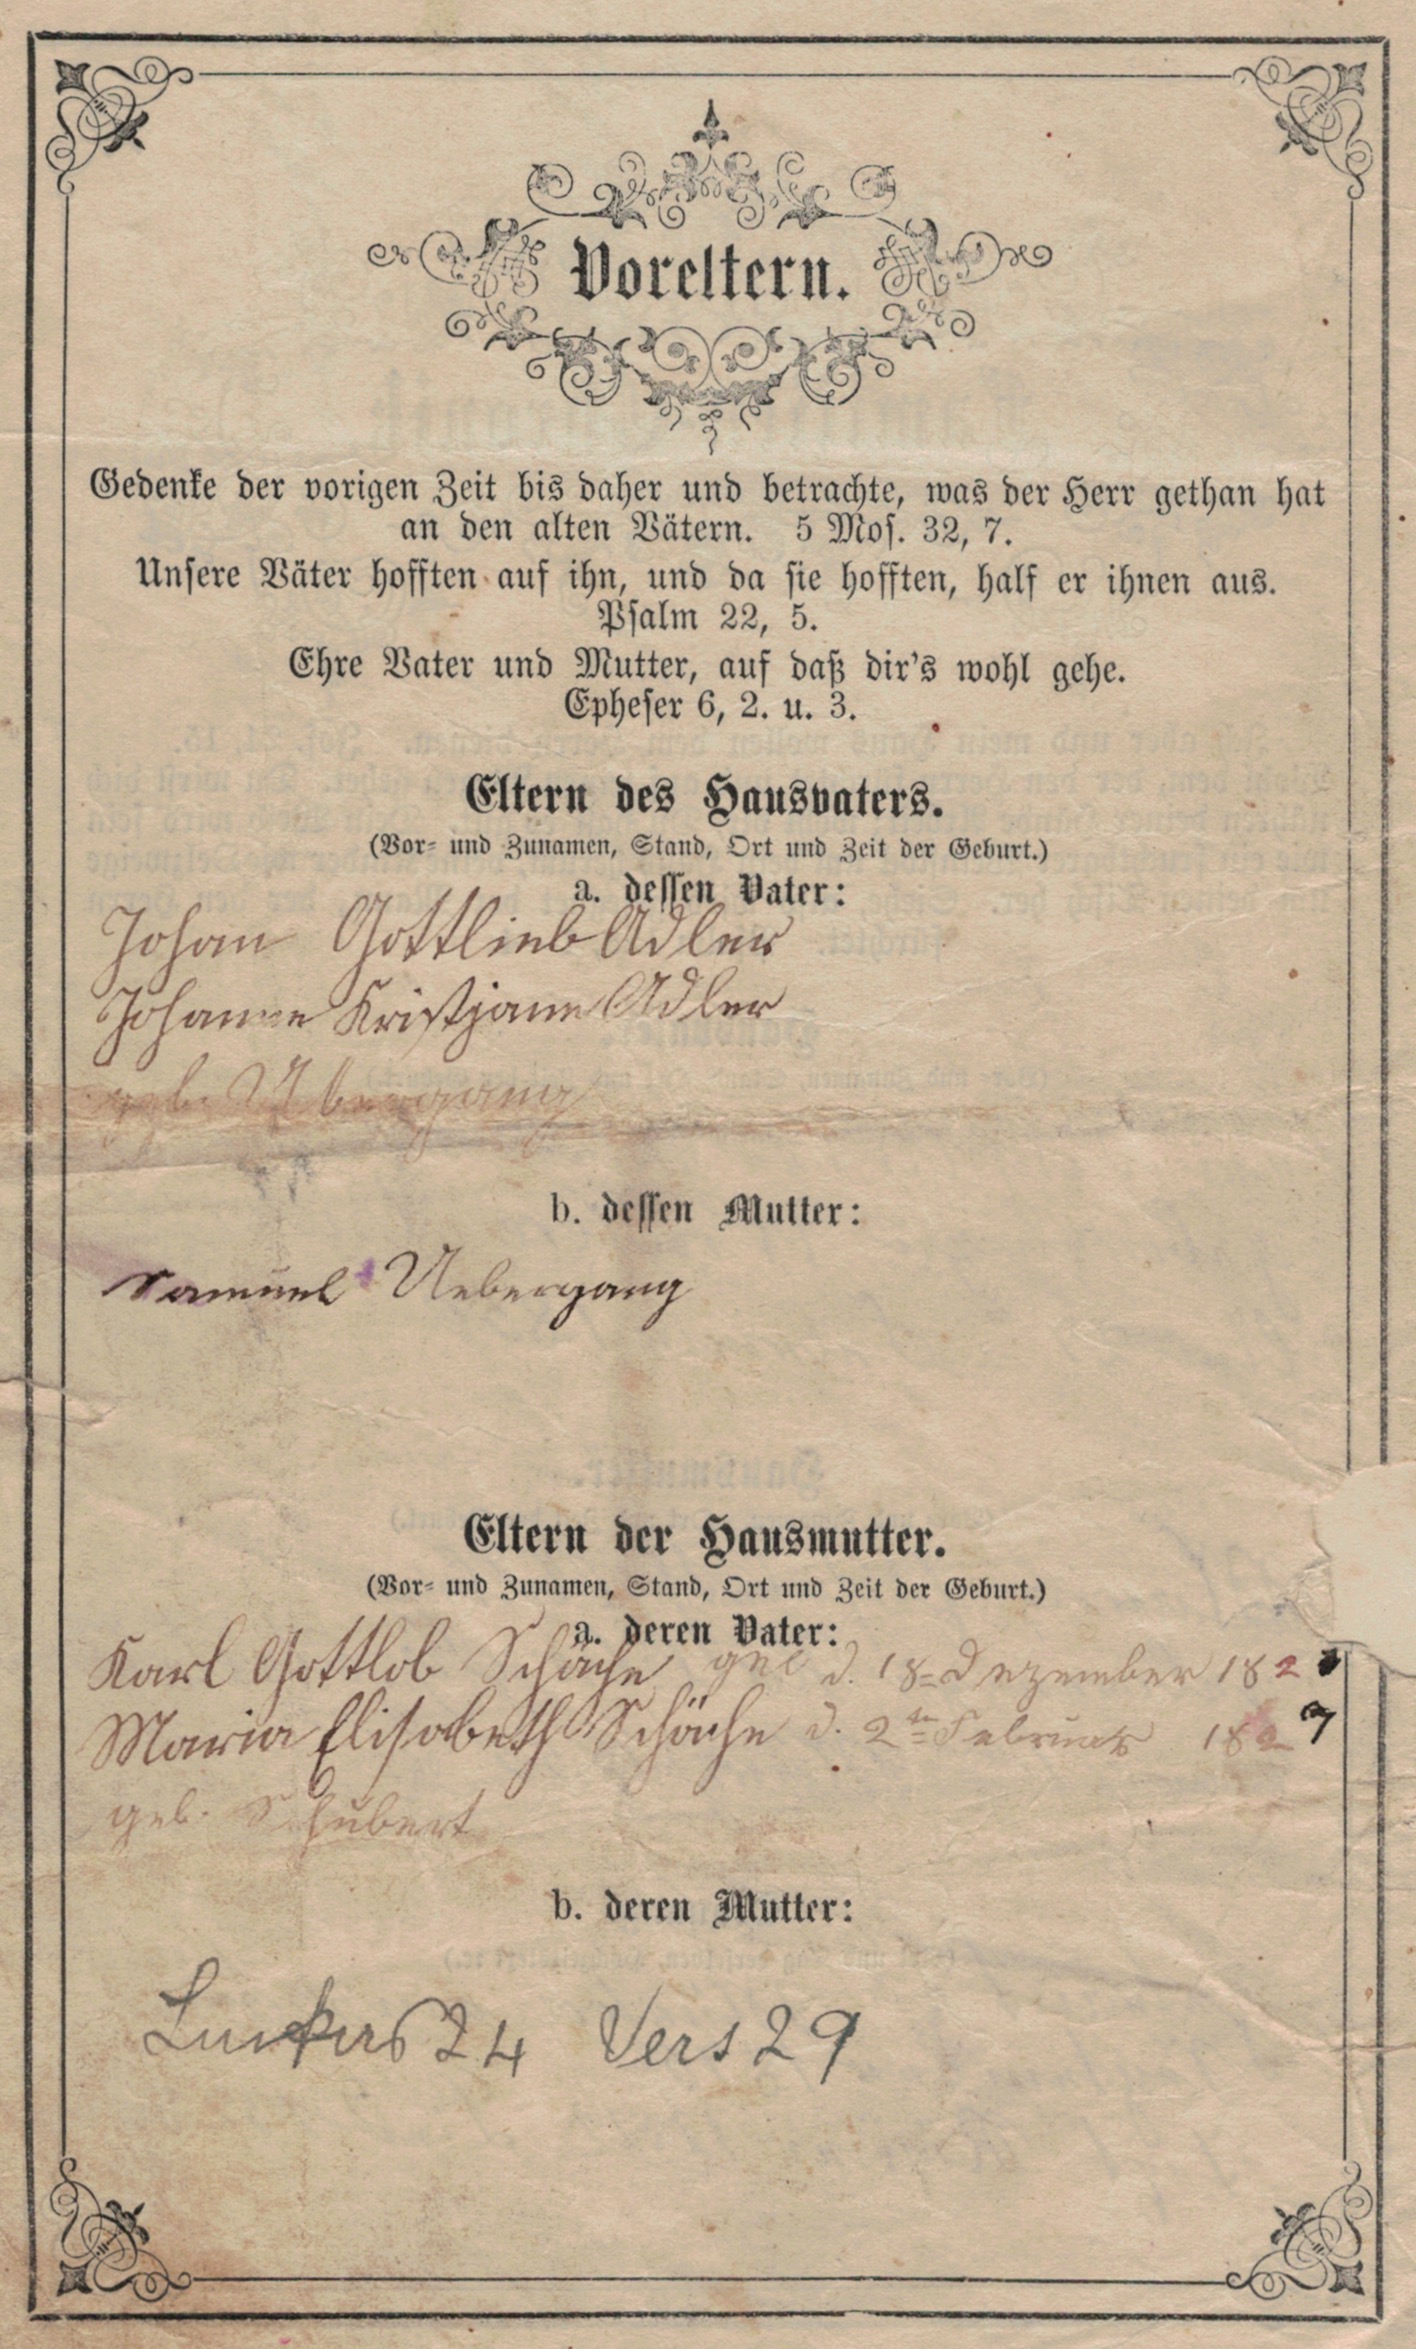 Voreltern.
Gedenke der vorigen Zeit bis daher und betrachte, was der Herr gethan hat
an den alten Vätern. 5 Mos. 32, 7.
Unsere Väter hofften auf ihn, und da sie hofften, half er ihnen aus.
Psalm 22, 5.
Ehre Vater und Mutter, auf daß dir's wohl gehe.
Epheser 6, 2. u. 3.
Eltern des Hausvaters.
(Vor- und Zunamen, Stand, Ort und Zeit der Geburt.)
a. dessen Vater:
Johan Gottlieb Adler
Johanne Kristjane Adler
geb. Übergang
b. dessen Mutter:
Samuel Uebergang
Eltern der Hausmutter.
(Vor- und Zunamen, Stand, Ort und Zeit der Geburt.)
a. deren Vater:
Karl Gottlob Schäche d. 18= Dezember
Maria Elisabeth Schäche d. 2te Februar 1827
geb. Schubert
b. deren Mutter:
24 Vers 29